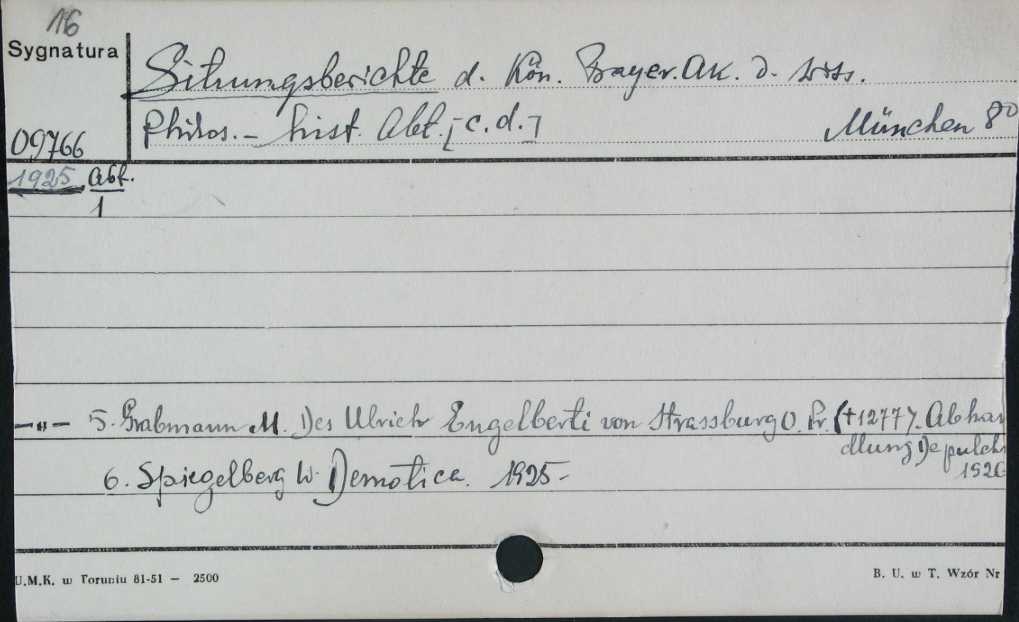 16
Sygnatura
Sitzungsberichte d. Kön. Bayer. Ak. d. Wiss.
09766
Philos. - hist. Abt. [c.d.]
München 8º
1925 Abt.
1
-"- 5. Grabmann M. Des Ulrich Engelberti von Strassburg O. Pr. (†1277). Abhan
dlung De pulchr
1926
6. Spiegelberg W. Demotica. 1925 -
U.M.K. w Toruniu 81-51 — 2500
B. U. w T. Wzór Nr